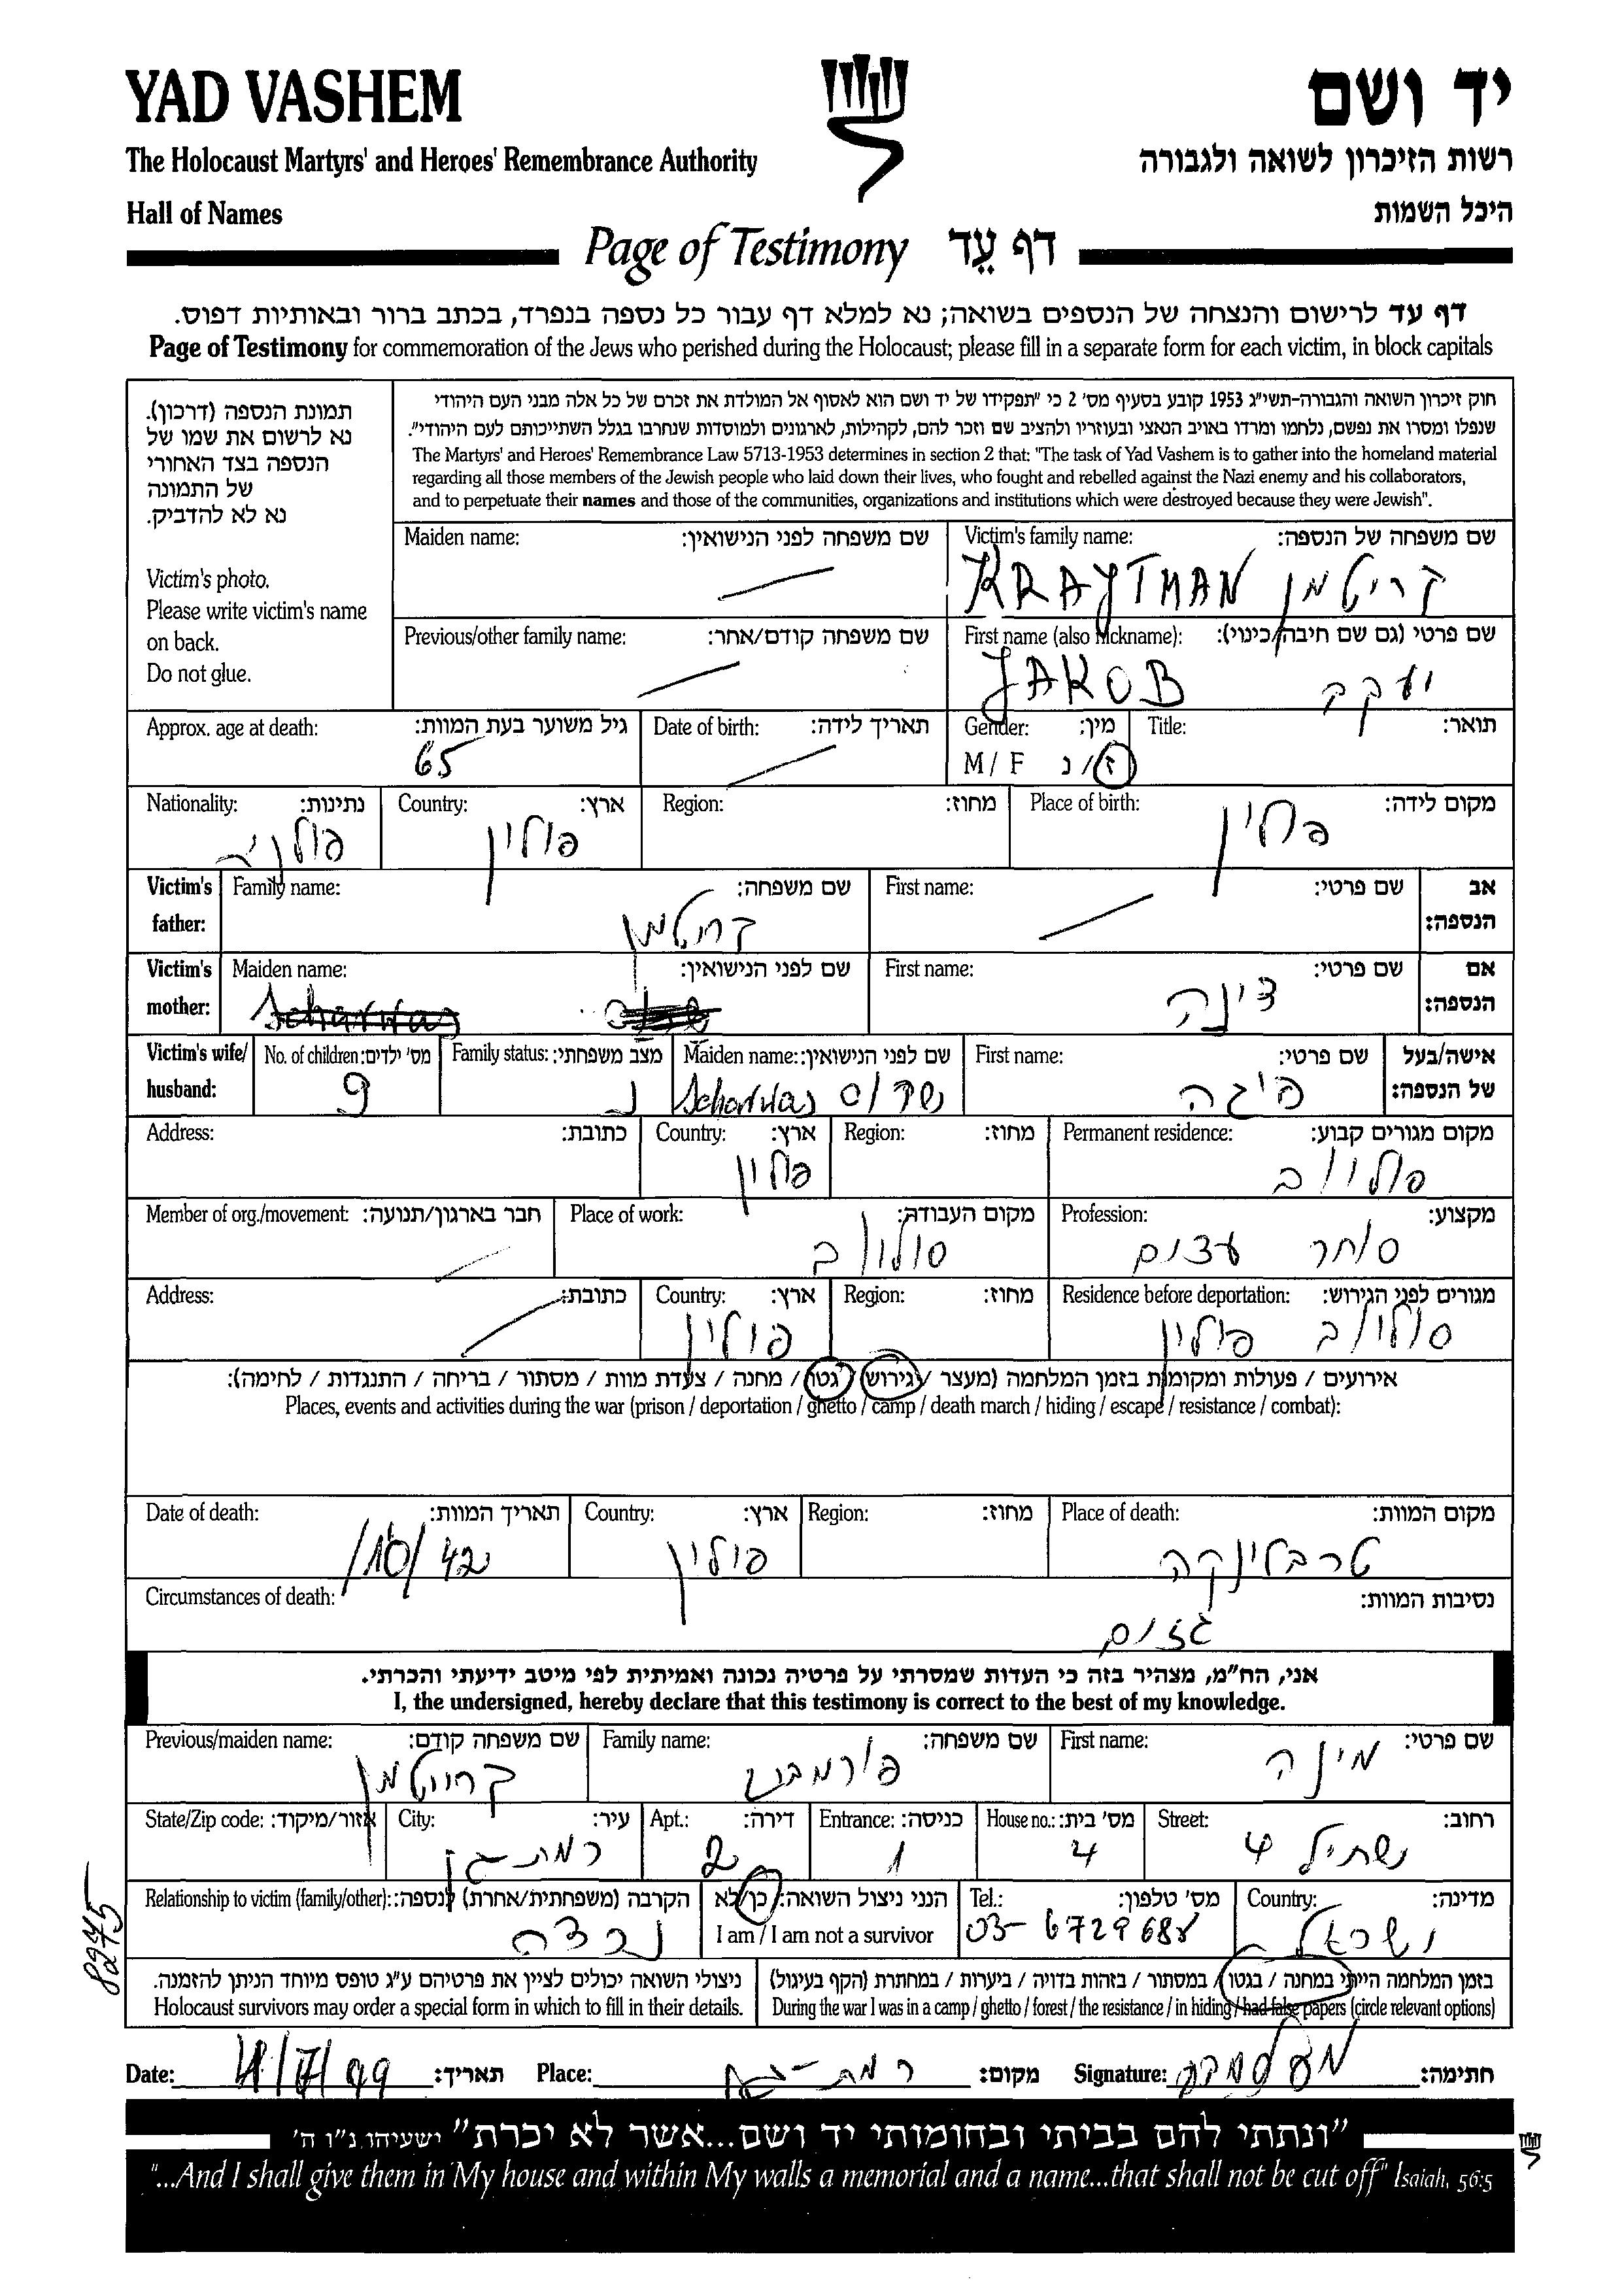 YAD VASHEM
יד ושם
The Holocaust Martyrs' and Heroes' Remembrance Authority
רשות הזיכרון לשואה ולגבורה
Hall of Names
היכל השמות
Page of Testimony דף עֵד
דף עד לרישום והנצחה של הנספים בשואה; נא למלא דף עבור כל נספה בנפרד, בכתב ברור ובאותיות דפוס.
Page of Testimony for commemoration of the Jews who perished during the Holocaust; please fill in a separate form for each victim, in block capitals
תמונת הנספה (דרכון).
נא לרשום את שמו של
הנספה בצד האחורי
של התמונה
נא לא להדביק.
Victim's photo.
Please write victim's name
on back.
Do not glue.
חוק זיכרון השואה והגבורה-תשי"ג 1953 קובע בסעיף מס' 2 כי "תפקידו של יד ושם הוא לאסוף אל המולדת את זכרם של כל אלה מבני העם היהודי
שנפלו ומסרו את נפשם, נלחמו ומרדו באויב הנאצי ובעוזריו ולהציב שם וזכר להם, לקהילות, לארגונים ולמוסדות שנחרבו בגלל השתייכותם לעם היהודי".
The Martyrs' and Heroes' Remembrance Law 5713-1953 determines in section 2 that: "The task of Yad Vashem is to gather into the homeland material
regarding all those members of the Jewish people who laid down their lives, who fought and rebelled against the Nazi enemy and his collaborators,
and to perpetuate their names and those of the communities, organizations and institutions which were destroyed because they were Jewish".
Victim's family name: שם משפחה של הנספה:
KRAYTMAN קריטמן
Maiden name: שם משפחה לפני הנישואין:
First name (also nickname): שם פרטי (גם שם חיבה/כינוי):
JAKOB יעקב
Previous/other family name: שם משפחה קודם/אחר:
Title: תואר:
Gender: מין:
M / F ז/נ
Date of birth: תאריך לידה:
Approx. age at death: גיל משוער בעת המוות:
65
Place of birth: מקום לידה:
פולין
Region: מחוז:
Country: ארץ:
פולין
Nationality: נתינות:
פולניה
Victim's father: אב הנספה:
First name: שם פרטי:
Family name: שם משפחה:
קריטמן
Victim's mother: אם הנספה:
First name: שם פרטי:
דינה
Maiden name: שם לפני הנישואין:
Victim's wife/ husband: אישה/בעל של הנספה:
First name: שם פרטי:
פיגה
Maiden name: שם לפני הנישואין:
Family status: מצב משפחתי:
נ
No. of children: מס' ילדים:
9
Permanent residence: מקום מגורים קבוע:
Region: מחוז:
Country: ארץ:
פולין
Address: כתובת:
Profession: מקצוע:
סוחר עצים
Place of work: מקום העבודה:
סולוב
Member of org./movement: חבר בארגון/תנועה:
Residence before deportation: מגורים לפני הגירוש:
סולוב פולין
Region: מחוז:
Country: ארץ:
פולין
Address: כתובת:
אירועים / פעולות ומקומות בזמן המלחמה (מעצר / גירוש / גטו / מחנה / צעדת מוות / מסתור / בריחה / התנגדות / לחימה):
Places, events and activities during the war (prison / deportation / ghetto / camp / death march / hiding / escape / resistance / combat):
Place of death: מקום המוות:
טרבלינקה
Region: מחוז:
Country: ארץ:
פולין
Date of death: תאריך המוות:
/10/42
Circumstances of death: נסיבות המוות:
גזים
אני, הח"מ, מצהיר בזה כי העדות שמסרתי על פרטיה נכונה ואמיתית לפי מיטב ידיעתי והכרתי.
I, the undersigned, hereby declare that this testimony is correct to the best of my knowledge.
First name: שם פרטי:
מינה
Family name: שם משפחה:
Previous/maiden name: שם משפחה קודם:
קרייטמן
Street: רחוב:
4
House no.: מס' בית:
4
Entrance: כניסה:
1
Apt.: דירה:
2
City: עיר:
רמת-גן
State/Zip code: אזור/מיקוד:
Country: מדינה:
ישראל
Tel.: מס' טלפון:
03-6729688
הנני ניצול השואה: כן/לא
I am / I am not a survivor
Relationship to victim (family/other): הקרבה (משפחתית/אחרת) לנספה:
נכדה
82745
בזמן המלחמה הייתי במחנה / בגטו / במסתור / בזהות בדויה / ביערות / במחתרת (הקף בעיגול)
During the war I was in a camp / ghetto / forest / the resistance / in hiding / had false papers (circle relevant options)
ניצולי השואה יכולים לציין את פרטיהם ע"ג טופס מיוחד הניתן להזמנה.
Holocaust survivors may order a special form in which to fill in their details.
Date: תאריך:
Place: רמת-גן מקום:
Signature: חתימה:
"ונתתי להם בביתי ובחומותי יד ושם...אשר לא יכרת" ישעיהו נ"ו ה'
"...And I shall give them in My house and within My walls a memorial and a name...that shall not be cut off" Isaiah, 56:5